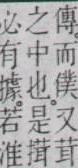 傳。而僕又其
之中也。是
必有據。若淮